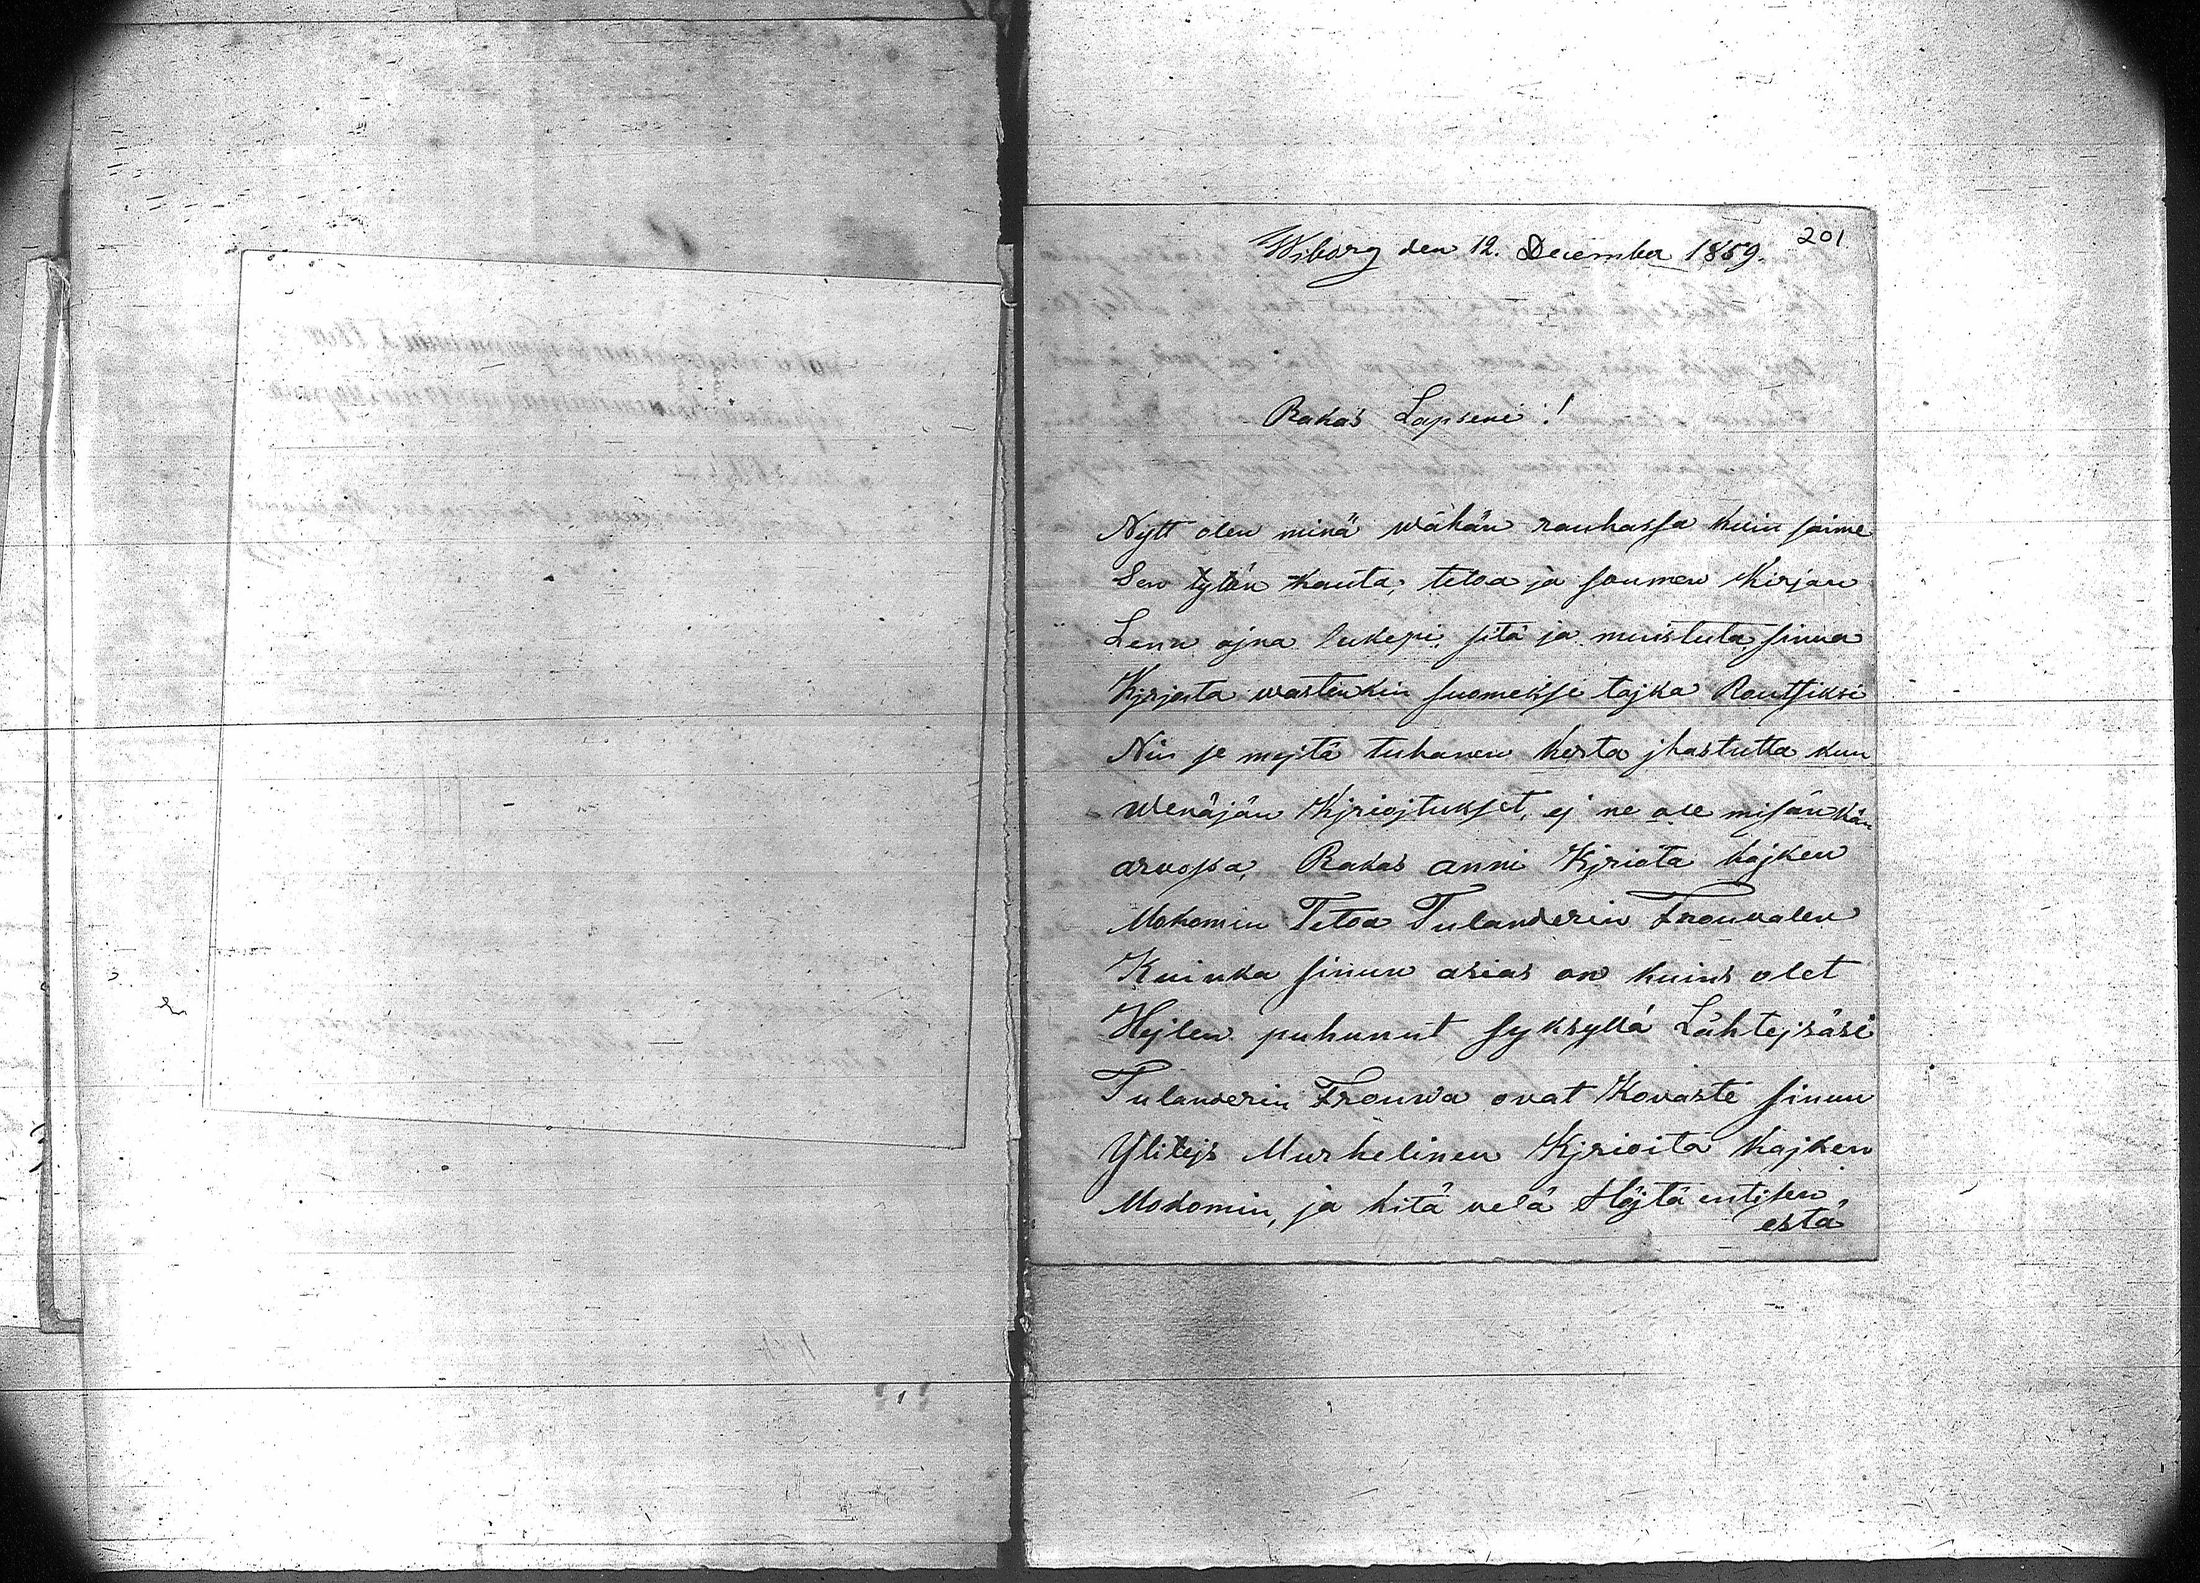 201
Wiborg den 12. December 1859.
Rakas Lapseni!
Nytt olen minä wähän rauhassa kuin saime
Sen tytön kauta, tetoa ja soumen Kirjan
Lenu ajna lukepi sitä ja muistuta sinua
Kjrjota wastenkin suomeksi tajka Routsiksi
Niin se myötä tuhanen kerta jhastutta kun
wenäjän Kjriojtukset, ej ne ole misänkän
arvossa, Rakas anni Kjriota kajken
Mokomin Tetoa Tulanderin Frouvalen
Kuinka sinun asias on kuins olet
Hejlen puhunut syksyllä Lähtejsäsi
Tulanderin Frouwa ovat Kovaste sinun
Ylitejs Murhelinen Kjrioita kajken
Mokomin, ja kitä velä Höjtä entisen
estä